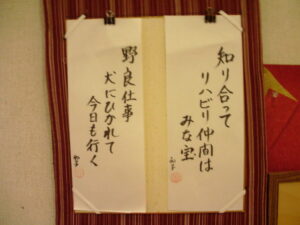 知り合って
リハビリ仲間は
みな宝
野良仕事
犬にひかれて
今日も行く